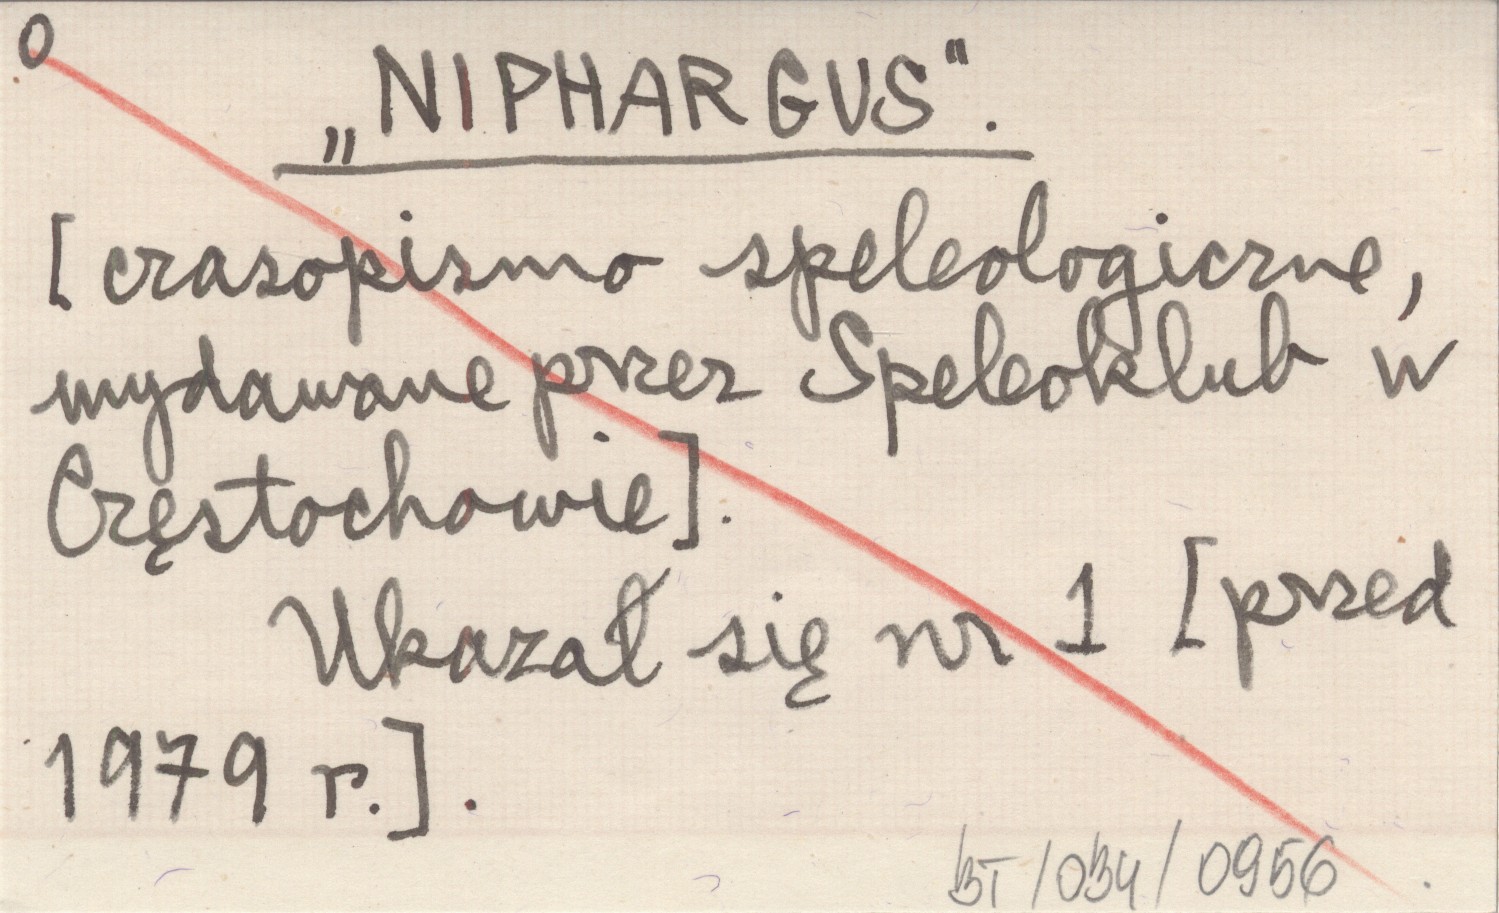 0
„NIPHARGUS".
[czasopismo speleologiczne,
wydawane przez Speleoklub w
Częstochowie].
Ukazał się nr 1 [przed
1979 r.].
BT/034/0956